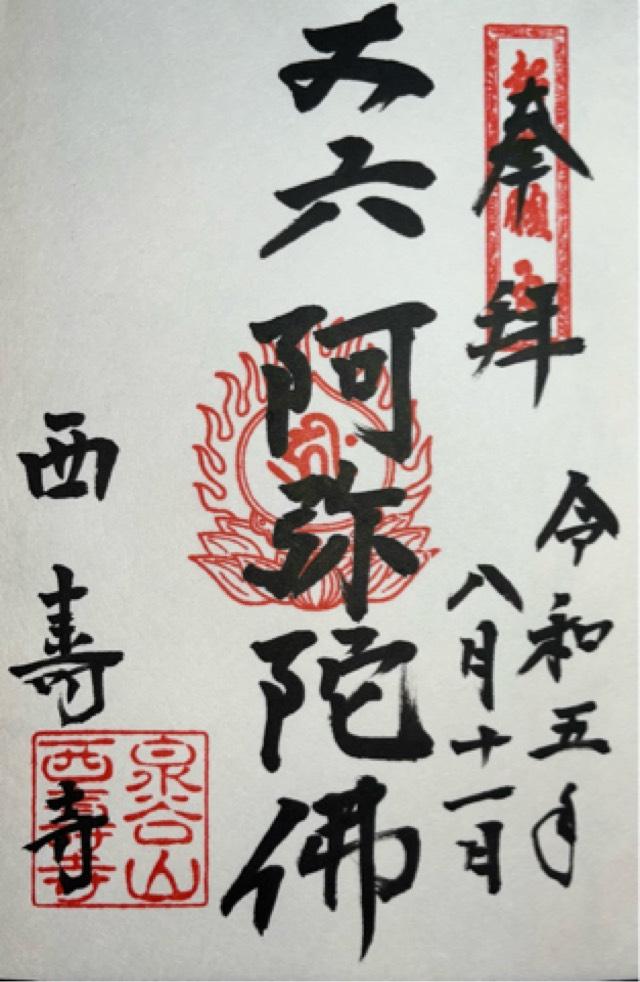 奉拝
令和五年
八月十一日
丈六
阿弥陀佛
西寿寺
泉谷山
西壽寺